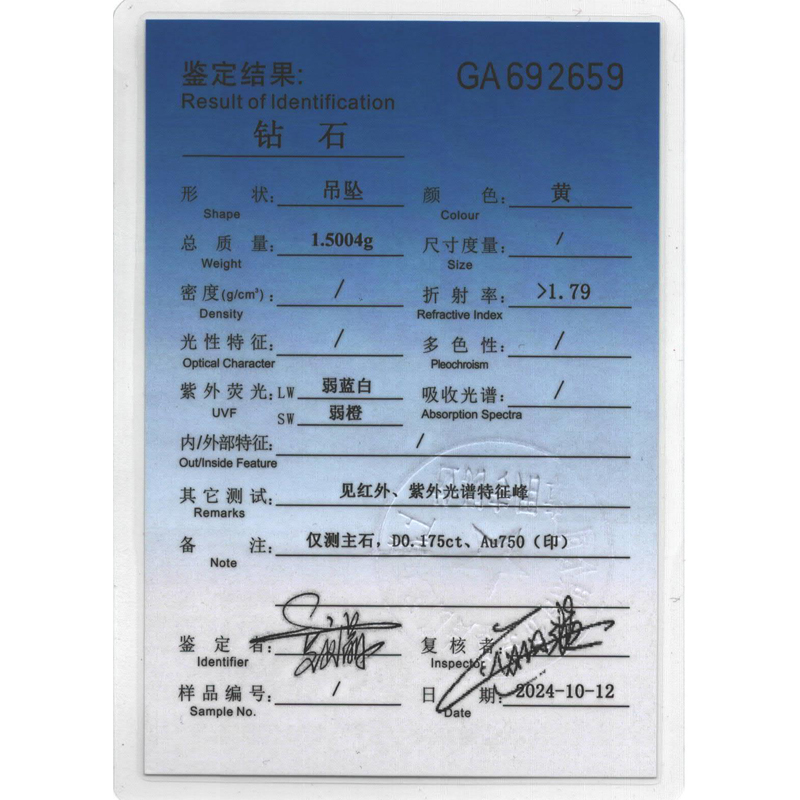 鉴定结果: GA692659
Result of Identification
钻 石
形 状: 吊坠 颜 色: 黄
Shape Colour
总 质 量: 1.5004g 尺寸度量: /
Weight Size
密度(g/cm³): / 折 射 率: >1.79
Density Refractive Index
光性特征: / 多 色 性: /
Optical Character Pleochroism
紫外荧光: LW 弱蓝白 吸收光谱: /
UVF SW 弱橙 Absorption Spectra
内/外部特征: /
Out/Inside Feature
其它测试: 见红外、紫外光谱特征峰
Remarks
备 注: 仅测主石, D0.175ct、Au750（印）
Note
鉴 定 者: 复 核 者:
Identifier Inspector
样品编号: / 日 期: 2024-10-12
Sample No. Date